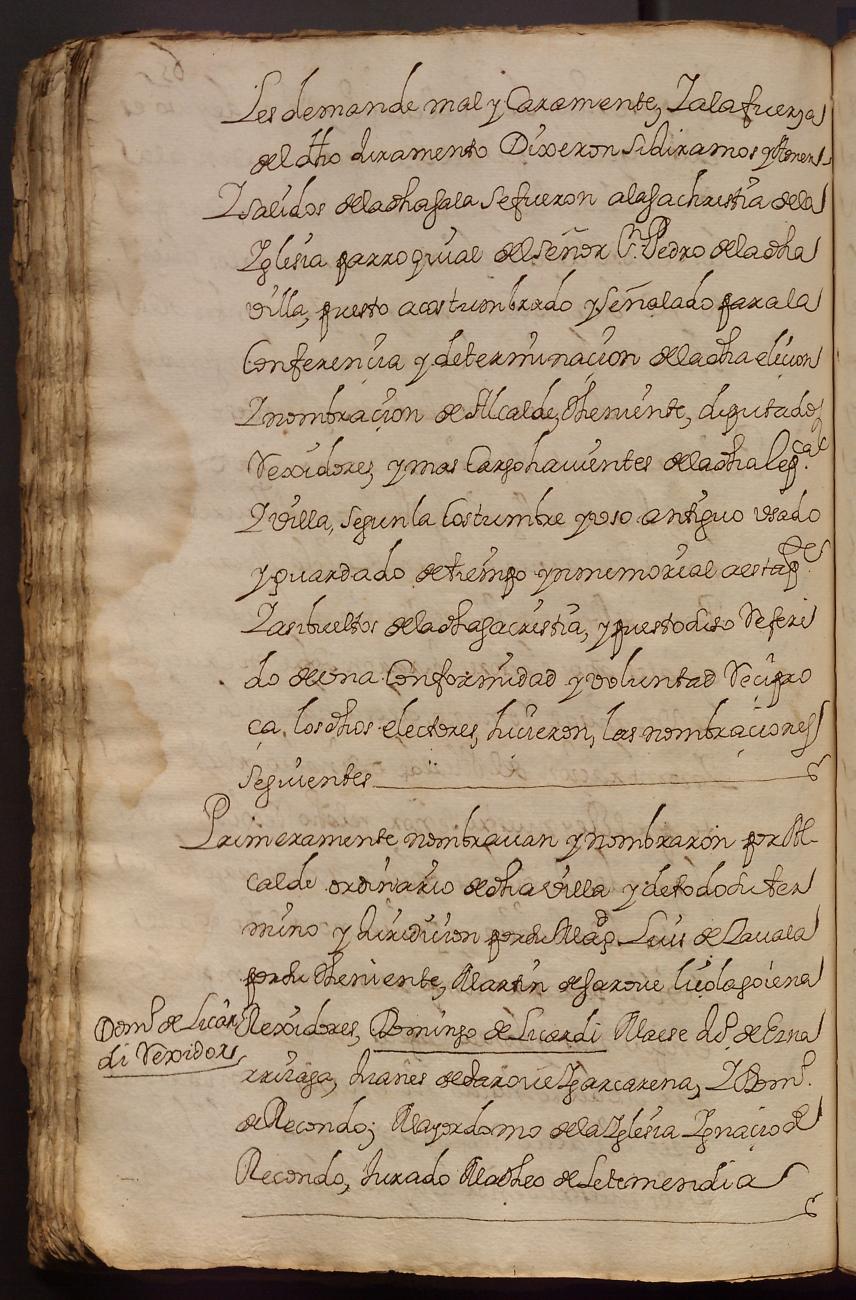 Les demande mal y Caramente, Y a la fuerza
del dho Juramento Dixeron Si Juramos y Amen
Y salidos de la dha Sala se fueron a la Sachristia de la
Yglesia parroquial del Señor S.n Pedro de la dha
villa, puesto acostumbrado y Señalado para la
Conferencia y determinacion de la dha elecion
Y nombracion de Alcalde, Theniente, diputados
Rexidores, y mas Cargohauientes de la dha
Y villa, segun la Costumbre y vso antiguo vsado
y guardado de tiempo ynmemorial a esta p.te
Y asi bueltos de la dha Sacristia, y puesto dho Referi
do de vna Conformidad y voluntad Recipro
ca, los dhos electores, hicieron, las nombraciones
Seguientes
Primeramente nombrauan y nombraron por Al-
calde ordinario de dha villa y de todo su ter
mino y Juridicion por su Mag.d Luis de Zauala
por su Theniente, Martin de Saroue
Rexidores, Domingo de Lucardi Maese de Ezna
rrizaga, Juanes de Saroue Ygarcarena, Y Dom.o
de Recondo; Mayordomo de la Yglesia Ygnacio de
Recondo, Jurado Matheo de Letemendia
Dom.o de Lucar
di Rexidor